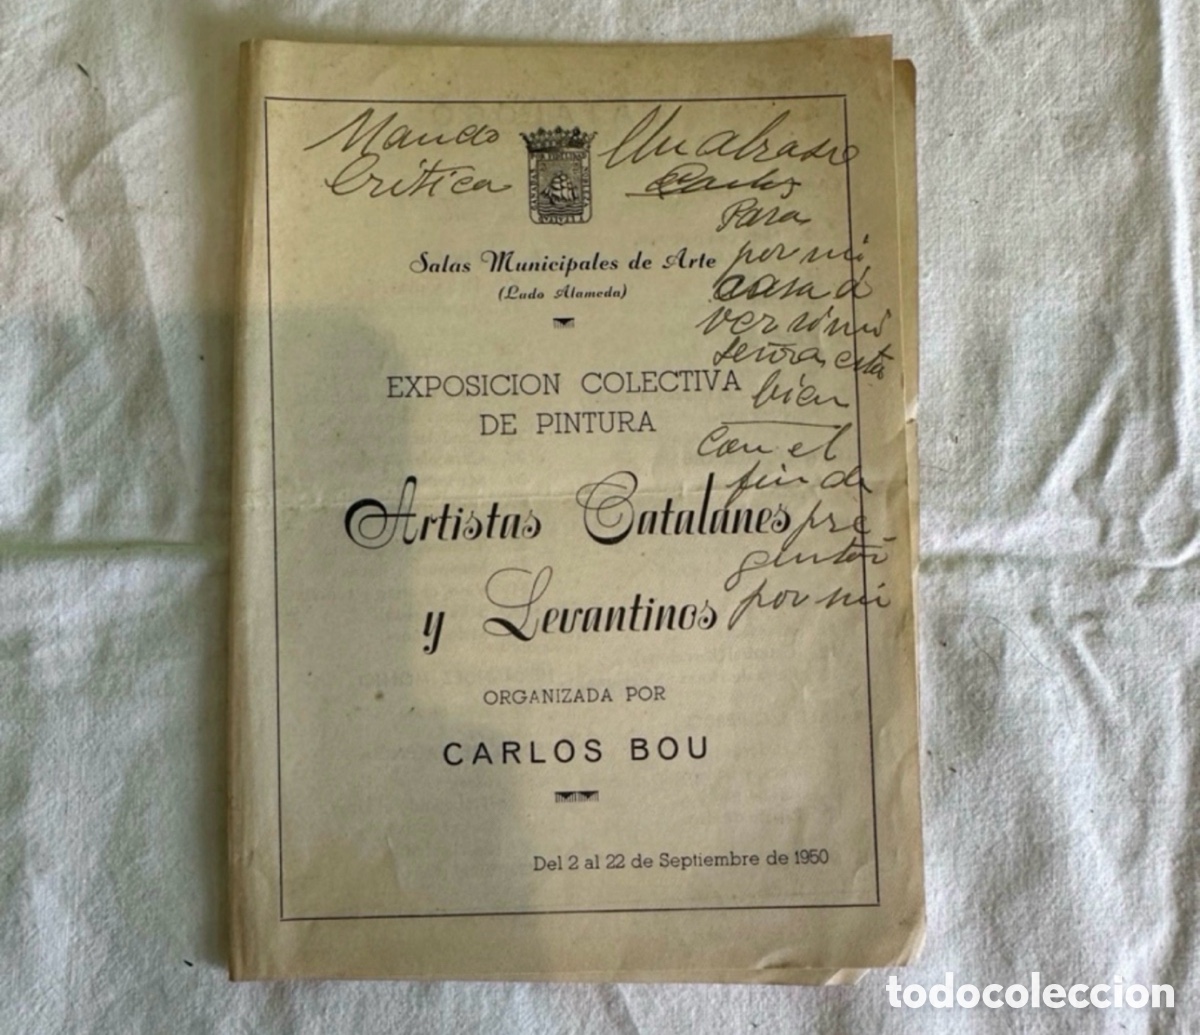 Mando
Critica
Un abrazo
Carlos
Para
por mi
casa a
ver si mi
señora esta
bien
con el
fin de
pre
guntar
por mi
Salas Municipales de Arte
(Lado Alameda)
EXPOSICION COLECTIVA
DE PINTURA
Artistas Catalanes
y Levantinos
ORGANIZADA POR
CARLOS BOU
Del 2 al 22 de Septiembre de 1950
todocoleccion